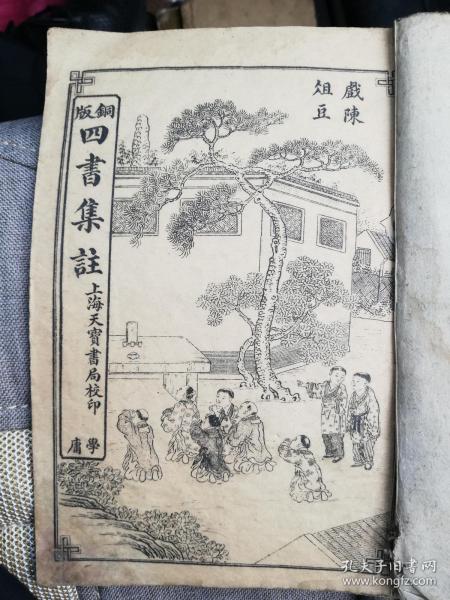 戲陳
俎豆
銅版
四書集註
上海天寶書局校印
學庸
孔夫子旧书网
www.kongfz.com